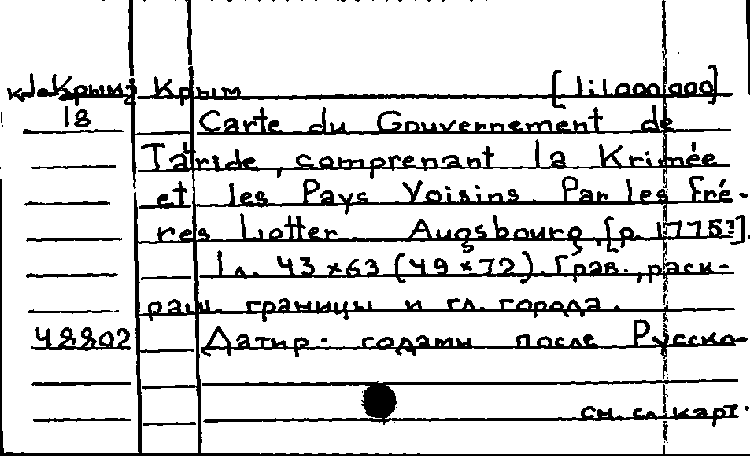 Крым [1:1.000.000]
18 Carte du Gouvernement de
Tauride, comprenant la Krimée
et les Pays Voisins. Par les Fré-
res Lotter. Augsbourg, [p. 1775?].
1 л. 43×63 (49×72). Грав., раск-
раш. границы и гл. города.
48802 Датир. годами после Русско-
см. сл. карт.